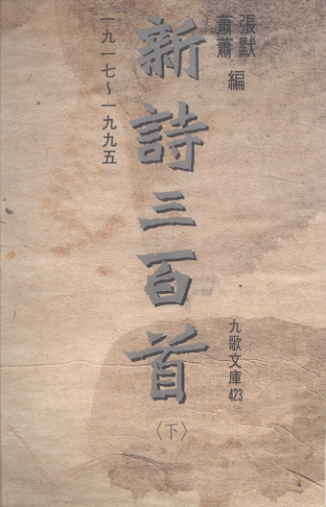 張默
蕭蕭 編
新詩三百首
〈下〉
一九一七～一九九五
九歌文庫423